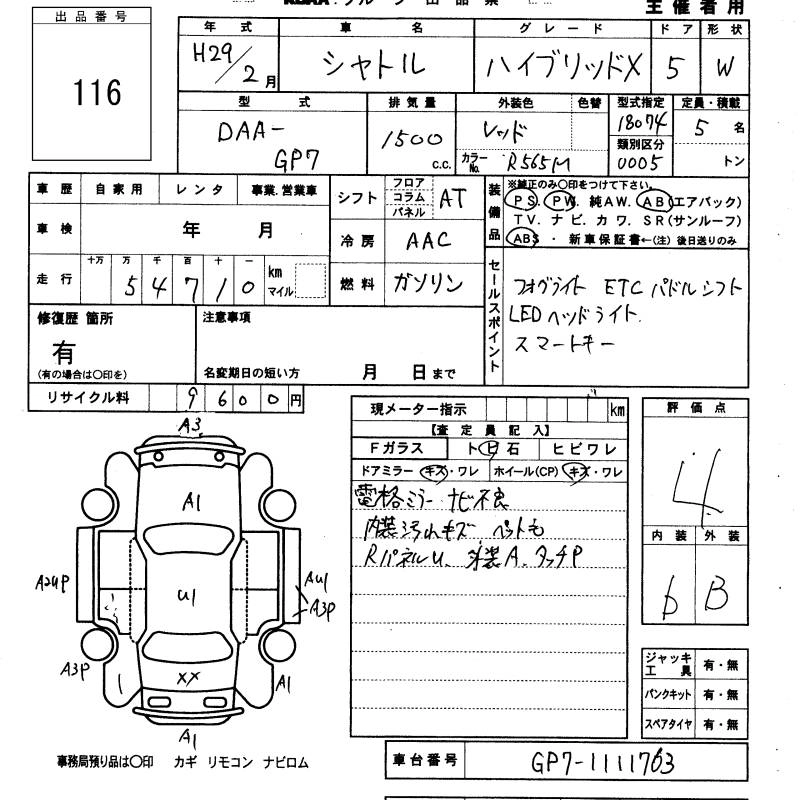 主催者用
出品番号
116
年式 車名 グレード ドア 形状
H29/2月 シャトル ハイブリッドX 5 W
型式 排気量 外装色 色替 型式指定 定員・積載
DAA-GP7 1500 c.c. レッド 18074 5名
カラーNo. R565M 類別区分 0005 トン
車歴 自家用 レンタ 事業.営業車
車検 年 月
走行 十万 万 千 百 十 一 km マイル
54710
シフト フロア コラム パネル AT
冷房 AAC
燃料 ガソリン
装備品
※純正のみ〇印をつけて下さい。
PS. PW. 純AW. AB(エアバック)
TV. ナビ. カワ. SR(サンルーフ)
ABS ・ 新車保証書←(注)後日送りのみ
セールスポイント
フォグライト ETC パドルシフト
LEDヘッドライト.
スマートキー
修復歴 箇所
有
(有の場合は〇印を)
注意事項
名変期日の短い方 月 日まで
リサイクル料 9600円
現メーター指示 km
【査定員記入】
Fガラス トビ石 ヒビワレ
ドアミラー キズ・ワレ ホイール(CP) キズ・ワレ
電格ミラー ナビ不良
内装汚れキズ ペットも
RパネルU. 外装A. タッチP
評価点
4
内装 外装
6 B
ジャッキ工具 有・無
パンクキット 有・無
スペアタイヤ 有・無
A3
A1
U1
A2UP
AU1
A3P
A3P
XX
A1
A1
事務局預り品は〇印 カギ リモコン ナビロム
車台番号 GP7-1111763